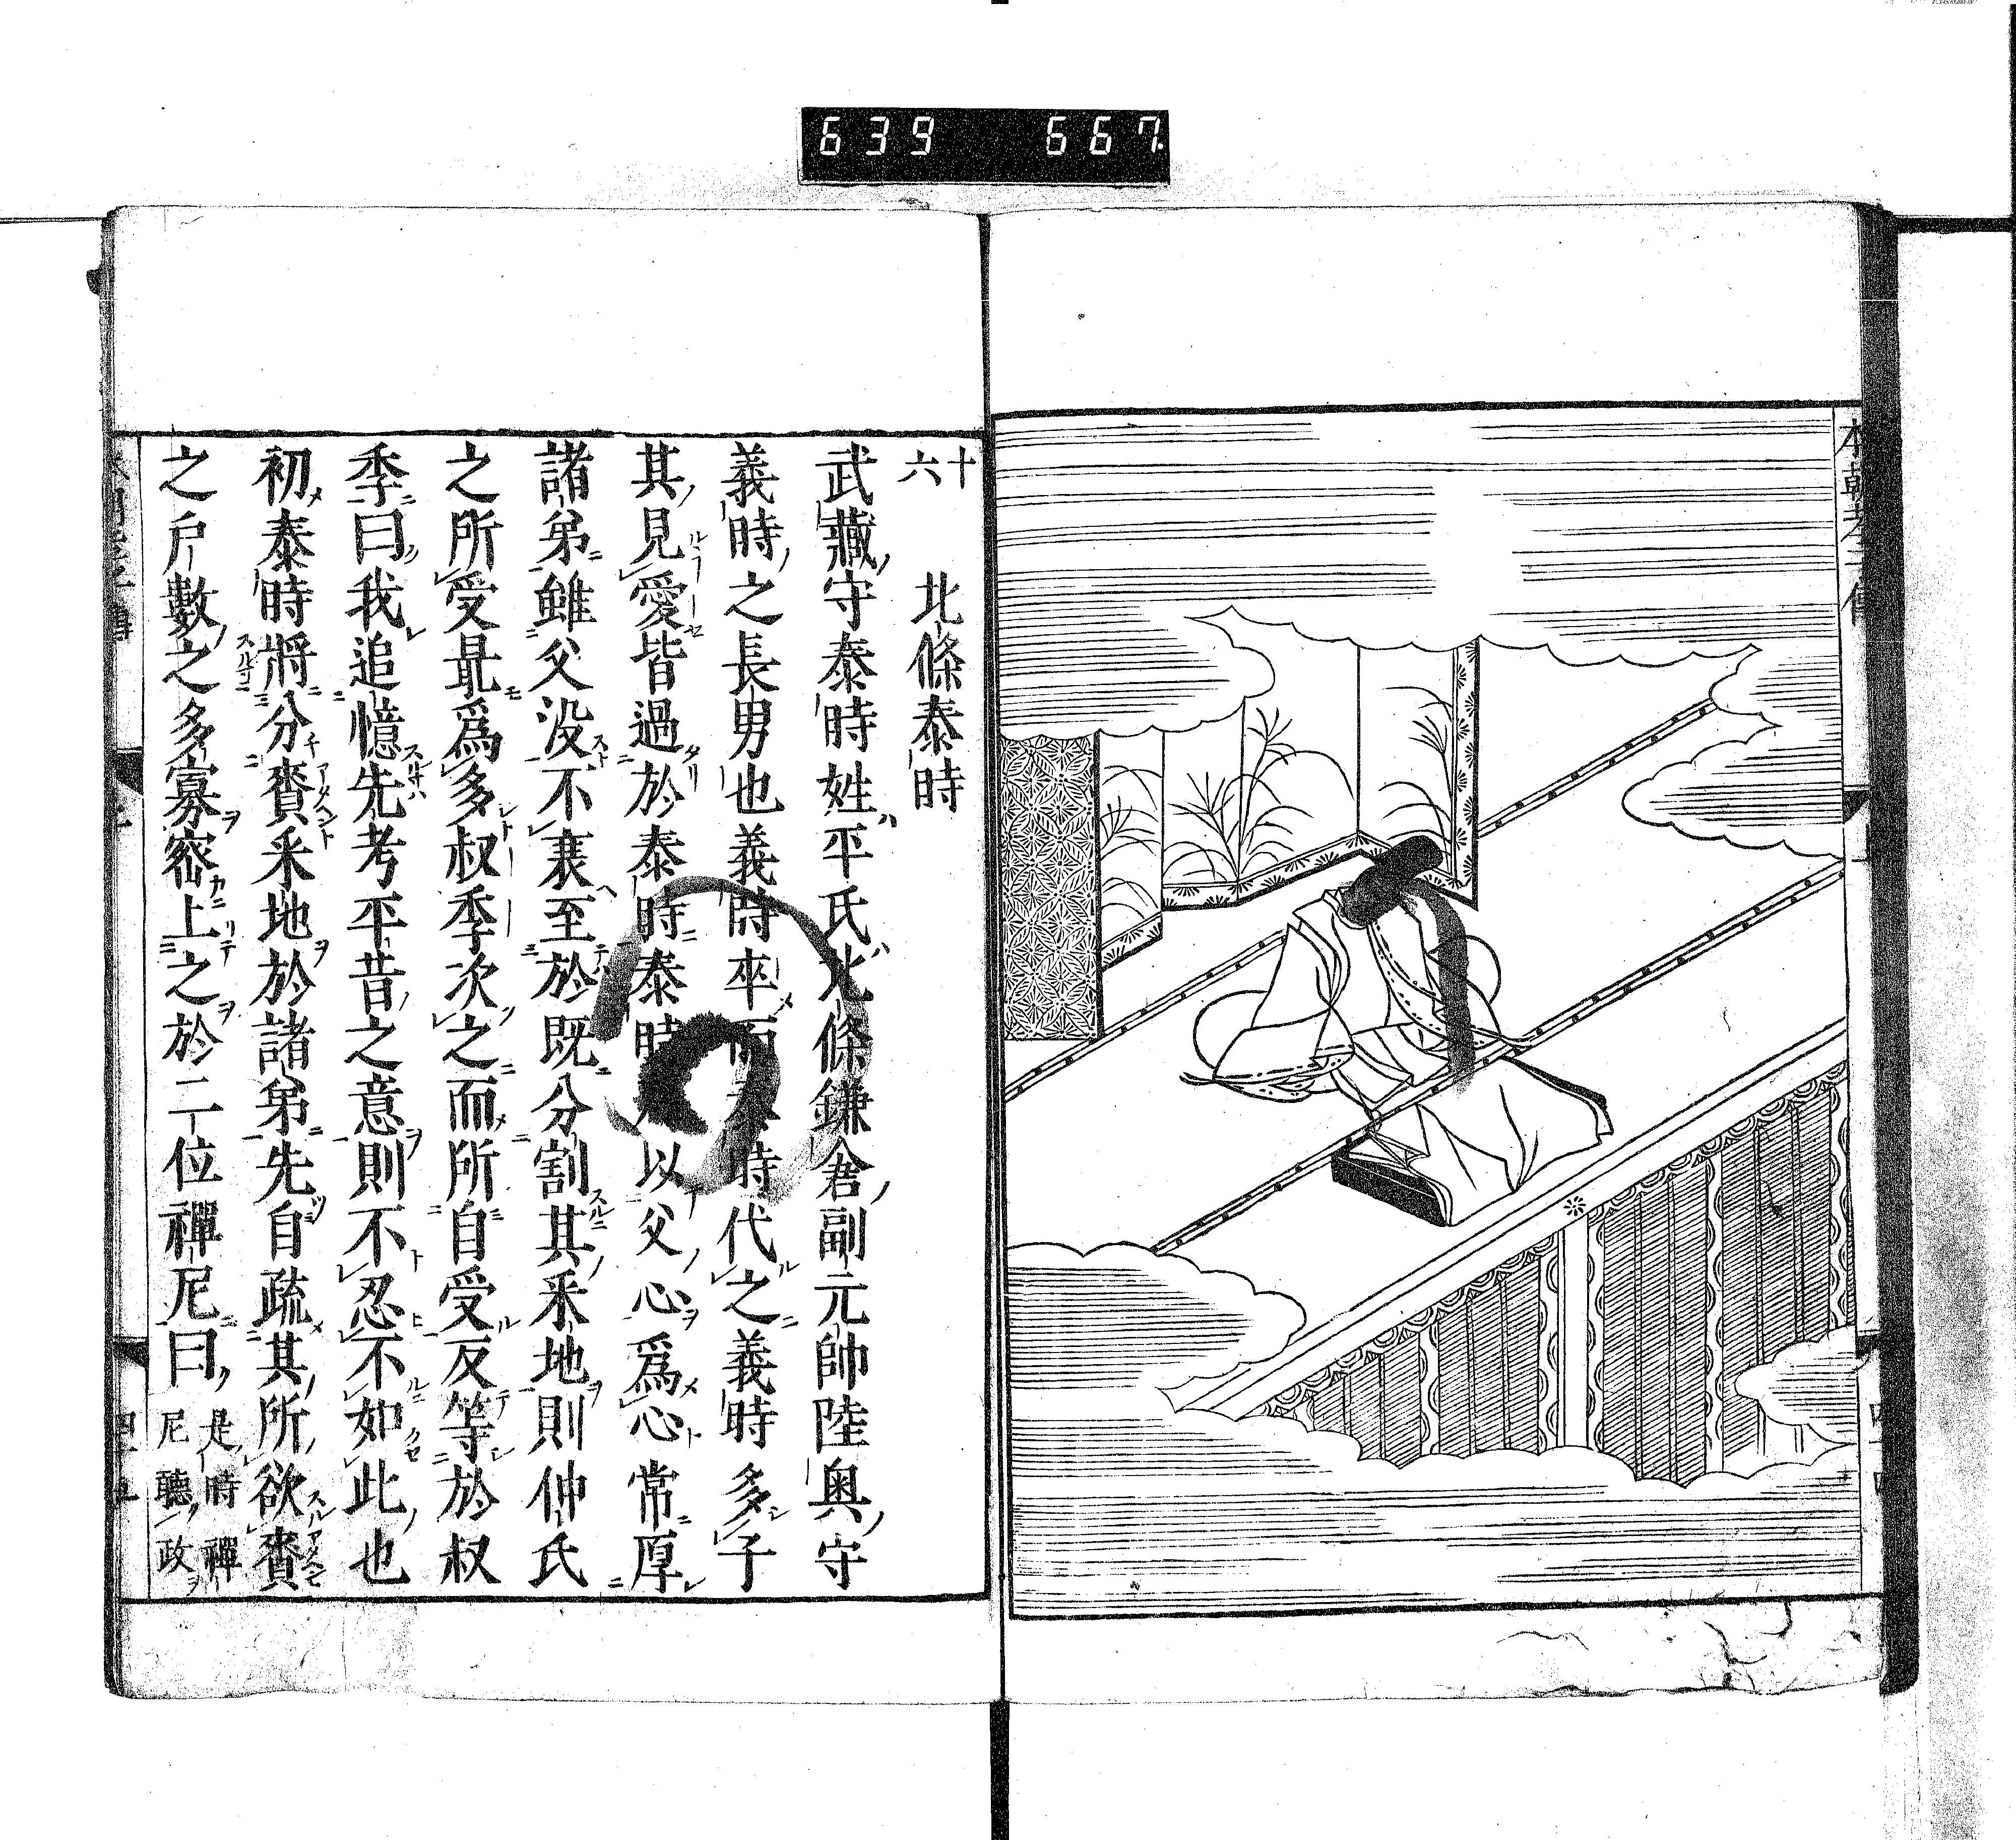 639 667.
十六 北條泰時
武藏守泰時姓平氏北條鎌倉副元帥陸奥守
義時之長男也義時卒而泰時代之義時多子
其見愛皆過於泰時泰時以父心爲心常厚
諸弟雖父没不衰至於既分割其釆地則仲氏
之所受最爲多叔季次之而所自受反等於叔
季曰我追憶先考平昔之意則不忍不如此也
初泰時將分賚釆地於諸弟先自疏其所欲賚
之戸數之多寡密上之於二位禪尼曰是時禪
尼聽政